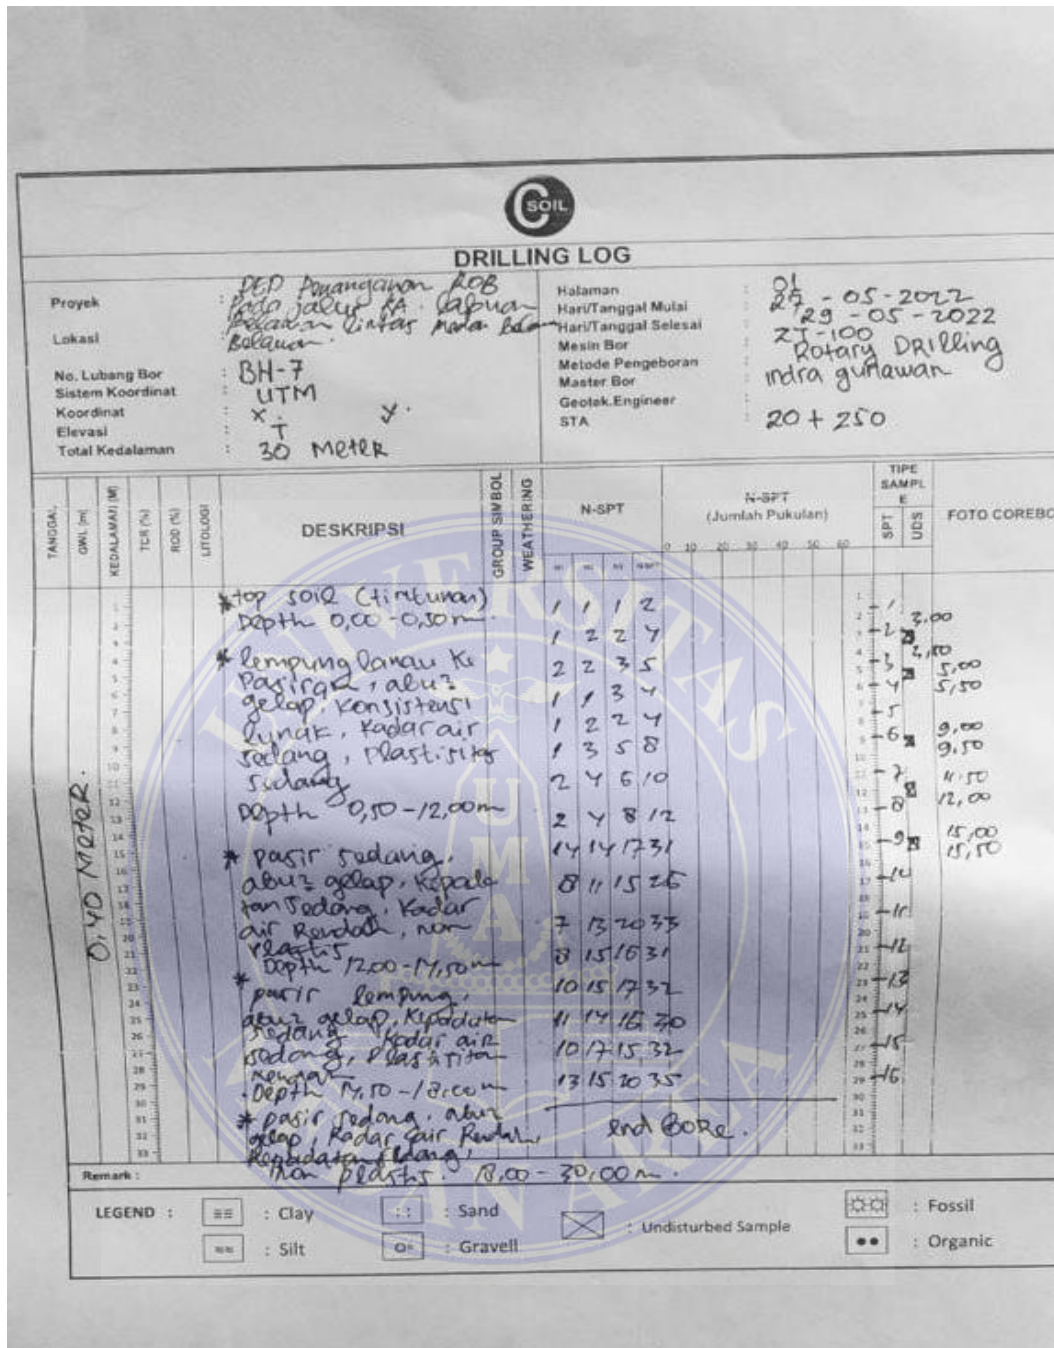 C SOIL
DRILLING LOG
Proyek : DED Penanganan ROB
Pada jalur KA. Labuan
Lokasi Belawan Lintas Medan Bela
Belawan.
No. Lubang Bor : BH-7
Sistem Koordinat : UTM
Koordinat : X : y.
Elevasi :
Total Kedalaman : 30 Meter
Halaman : 01
Hari/Tanggal Mulai : 27 - 05 - 2022
Hari/Tanggal Selesai : 29 - 05 - 2022
Mesin Bor : ZJ-100
Metode Pengeboran Rotary DRilling
Master Bor indra gunawan
Geotek.Engineer
STA : 20 + 250
TANGGAL
GWL (m)
KEDALAMAN (M)
TCR (%)
RQD (%)
LITOLOGI
DESKRIPSI
GROUP SIMBOL
WEATHERING
N-SPT
N-SPT
(Jumlah Pukulan)
0 10 20 30 40 50 60
TIPE
SAMPL
E
SPT
UDS
FOTO COREBO
0,40 MeteR.
* top soil (timbunan)
Depth 0,00 - 0,50 m.
* lempung lanau Ke
Pasiran, abu2
gelap, Konsistensi
lunak, Kadar air
sedang, Plastisitas
Sedang
Depth 0,50 - 12,00 m
* pasir sedang,
abu2 gelap, Kepada
tan Sedang, Kadar
air Rendah, non
Plastis
Depth 12.00 - 17,50 m
* pasir lempung,
abu2 gelap, Kepadatan
sedang Kadar air
sedang, Plastisitas
Depth 17,50 - 18,00 m
* pasir sedang, abu2
gelap, Kadar air Rendah,
Kepadatan sedang,
non plastis. 18,00 - 30,00 m.
1 1 1 2
1 2 2 4
2 2 3 5
1 1 3 4
1 2 2 4
1 3 5 8
2 4 6 10
2 4 8 12
14 14 17 31
8 11 15 26
7 13 20 33
8 15 16 31
10 15 17 32
11 14 16 30
10 17 15 32
13 15 20 35
end BoRe.
1
2
3
4
5
6
7
8
9
10
11
12
13
14
15
16
5,00
5,50
9,00
9,50
11.50
12,00
15,00
15,50
Remark :
LEGEND : : Clay : Sand : Undisturbed Sample : Fossil
: Silt : Gravell : Organic
UNIVERSITAS
MEDAN AREA
UMA